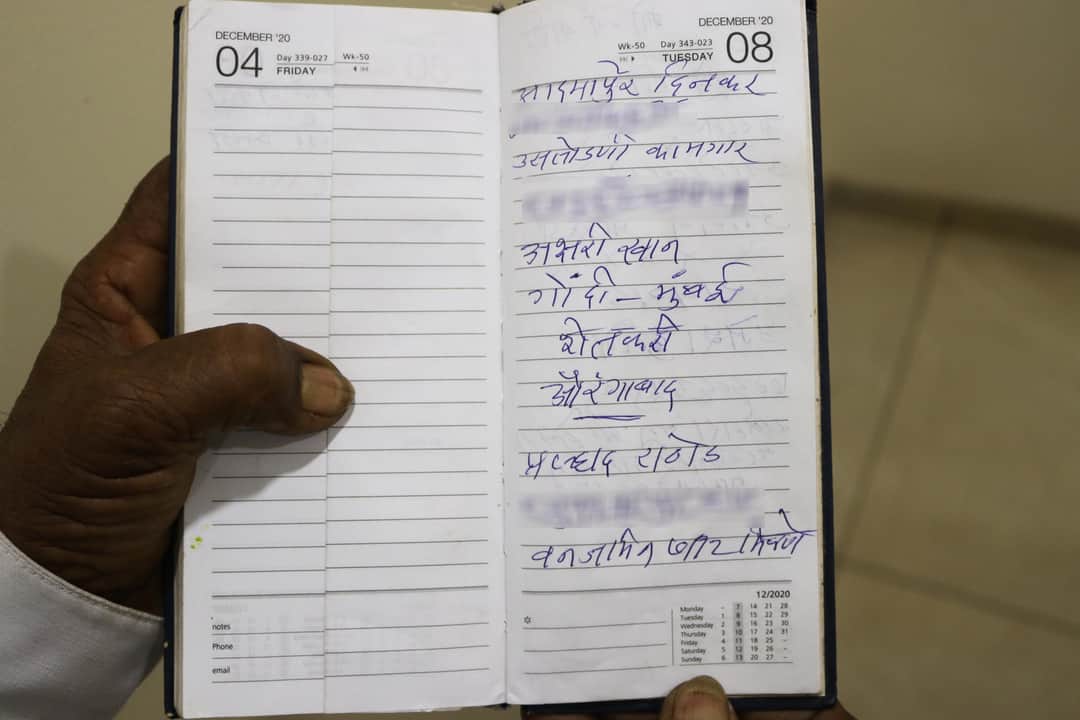 DECEMBER '20
04
Day 339-027
FRIDAY
Wk-50
notes
Phone
email
DECEMBER '20
Wk-50
Day 343-023
TUESDAY
08
दिनकर
उसतोडणी कामगार
खान
गोंदी – मुंबई
शेतकरी
औरंगाबाद
प्रल्हाद राठोड
12/2020
Monday - 7 14 21 28
Tuesday 1 8 15 22 29
Wednesday 2 9 16 23 30
Thursday 3 10 17 24 31
Friday 4 11 18 25 -
Saturday 5 12 19 26 -
Sunday 6 13 20 27 -